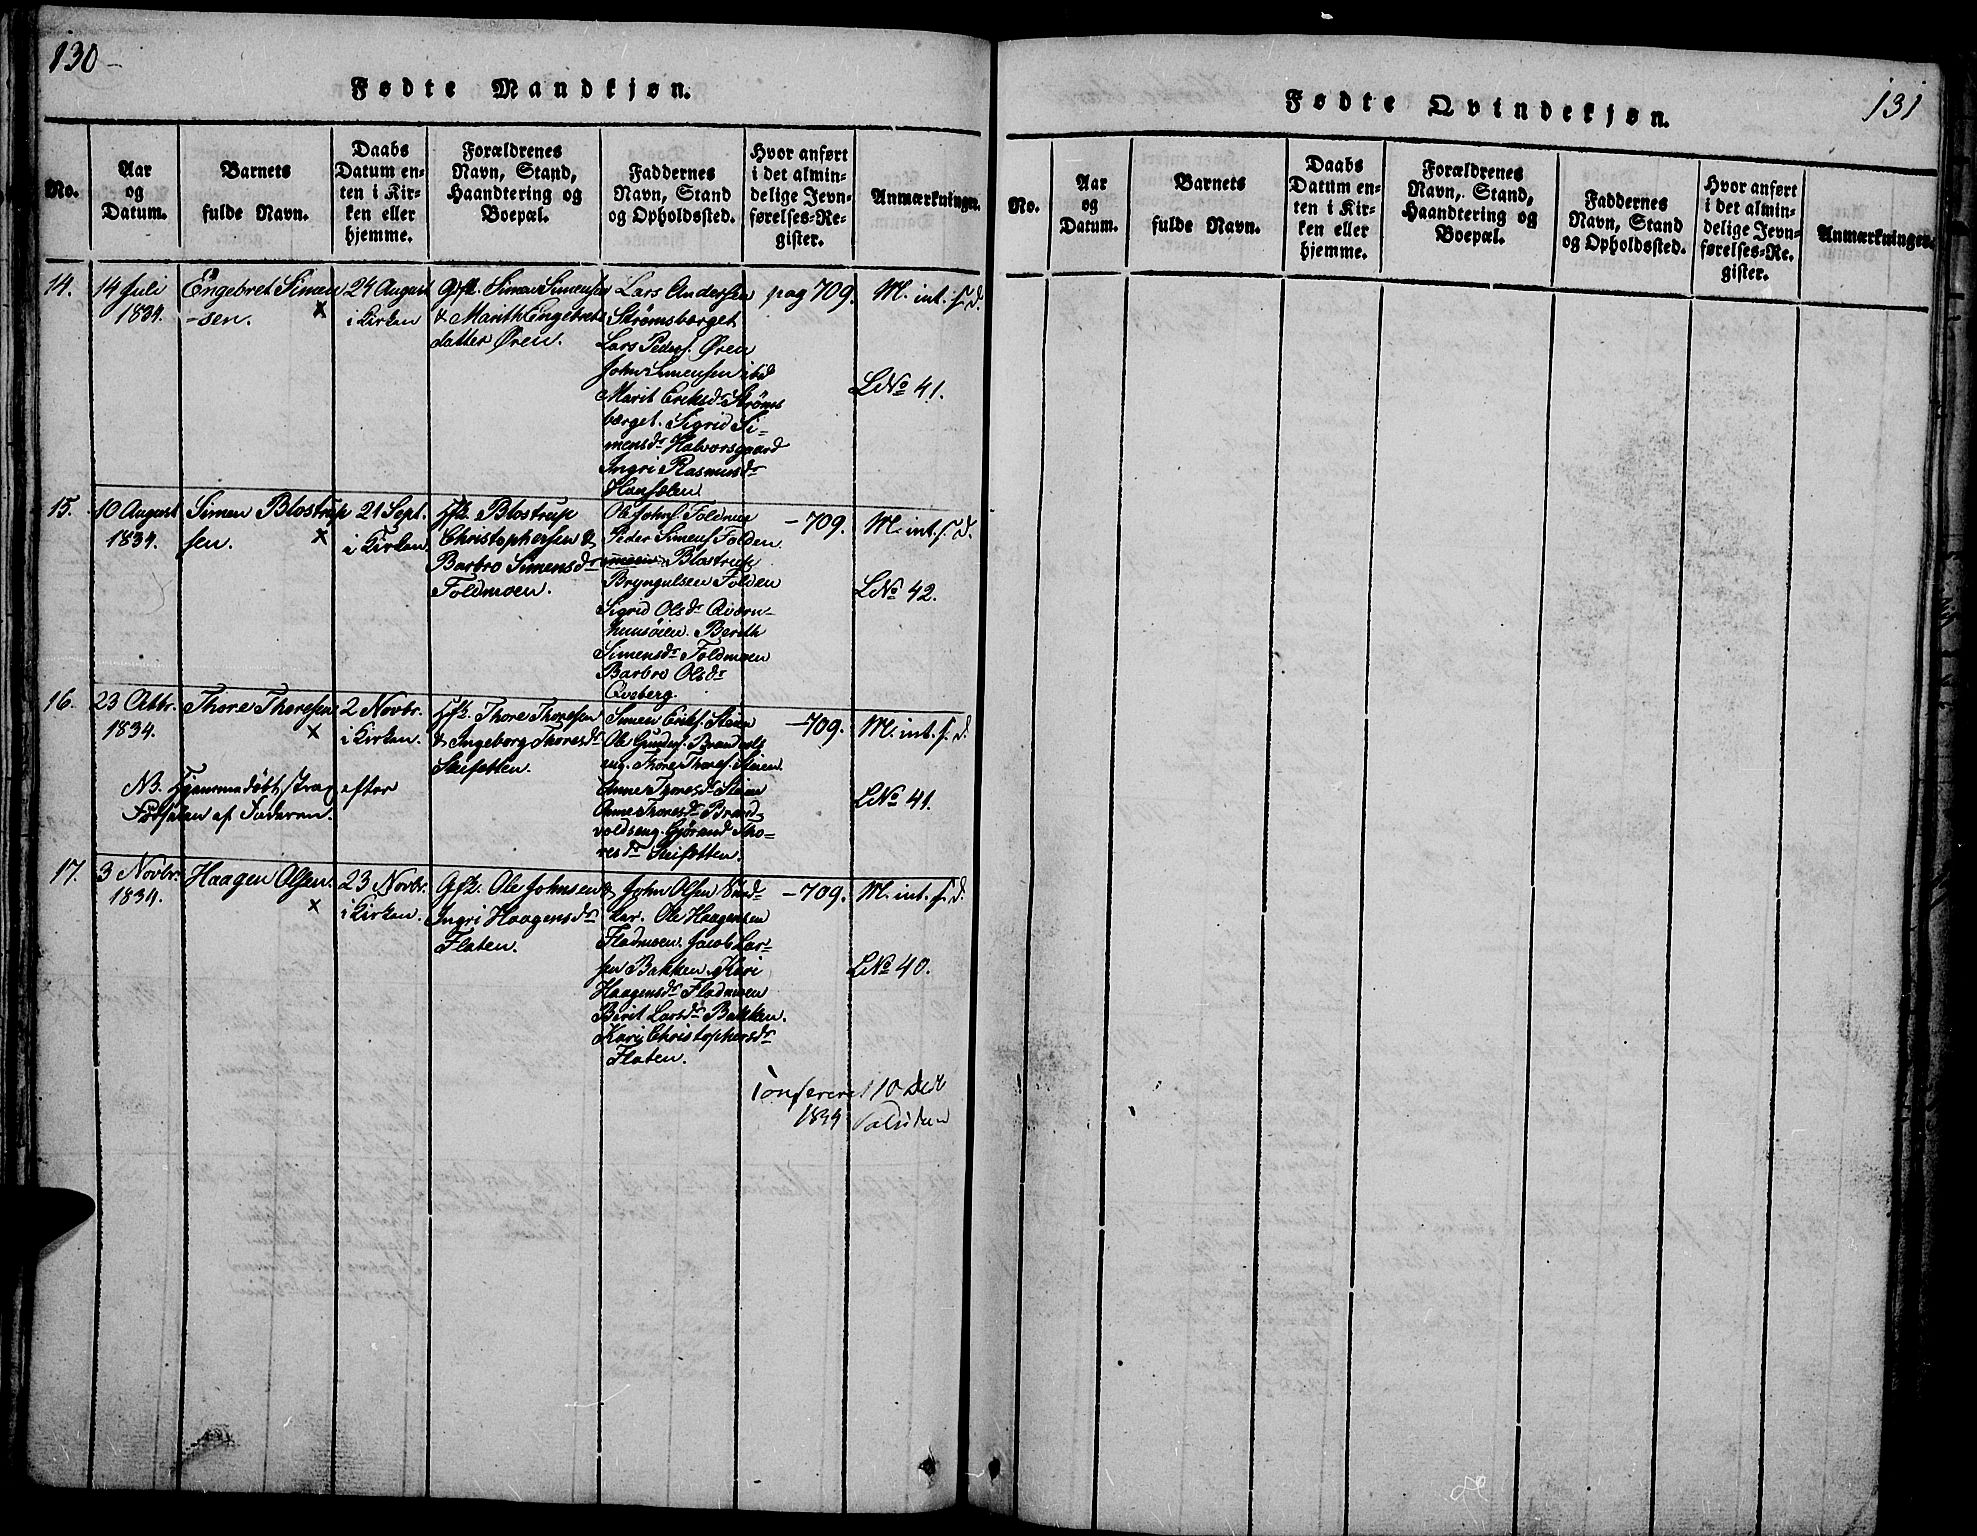 130
Fødte Mandkjøn.
No.
Aar
og
Datum.
Barnets
fulde Navn.
Daabs
Datum en-
ten i Kir-
ken eller
hjemme.
Forældrenes
Navn, Stand,
Haandtering og
Boepæl.
Faddernes
Navn, Stand
og Opholdssted.
Hvor anført
i det almin-
delige Jevn-
førelses-Re-
gister.
Anmærkninger.
14.
14 Juli
1834.
Engebret Simen
-sen. x
24 August
i Kirken
Gft. Simen Simensen
& Marith Engebrets
datter Øren.
Lars Andersen
Strømsbærget
Lars Peders. Øren
John Simensen ibid
Marit Eriksdr Strøms
bærget. Sigrid Si-
mensdr Halvorsgaard
Ingri Rasmusdr
pag 709.
M. int. s. d.
LNo 41.
15.
10 August
1834.
Simen Blostrup
sen. x
21 Sept.
i Kirken.
Hfk. Blostrup
Christophersen &
Barbro Simensdr
Foldmoen.
Ole Johns Foldmoe
Peder Simens Folden
Blostrup
Bryngulsen Folden
Sigrid Olsdr Qværn-
Berith
Simensdr Foldmoen
Barbro Olsdr
Qveberg.
- 709.
M. int. s. d.
LNo 42.
16.
23 Octbr.
1834.
Thore Thoresen
x
2 Novbr.
i Kirken.
Hfk. Thore Thoresen
& Ingeborg Thoresdr
Steifetten.
Simen Eriks. Steien
Ole Gunders. Brandvolds
eng. Thore Thores. Steien.
Anne Thoresdr Steien
Anne Thoresdr Brand-
voldseng. Gjørand Tho-
resdr Steifetten.
- 709.
M. int. s. d.
LNo 41.
NB. Hjemmedøbt strax efter
Fødselen af Faderen.
17.
3 Novbr.
1834.
Haagen Olsen.
x
23 Novbr.
i Kirken.
Gfk. Ole Johnsen &
Ingri Haagensdr
Flaten.
John Olsen Sund-
Ole Haagensen
Fladmoen. Jacob Lar-
sen Bakken. Kari
Haagensdr Fladmoen
Birit Larsdr Bakken.
Kari Christophersdr
Flaten.
- 709.
M. int. s. d.
LNo 40.
Confereret 10 Decb
1834
131
Fødte Qvindekjøn.
No.
Aar
og
Datum.
Barnets
fulde Navn.
Daabs
Datum en-
ten i Kir-
ken eller
hjemme.
Forældrenes
Navn, Stand,
Haandtering og
Boepæl.
Faddernes
Navn, Stand
og Opholdssted.
Hvor anført
i det almin-
delige Jevn-
førelses-Re-
gister.
Anmærkninger.